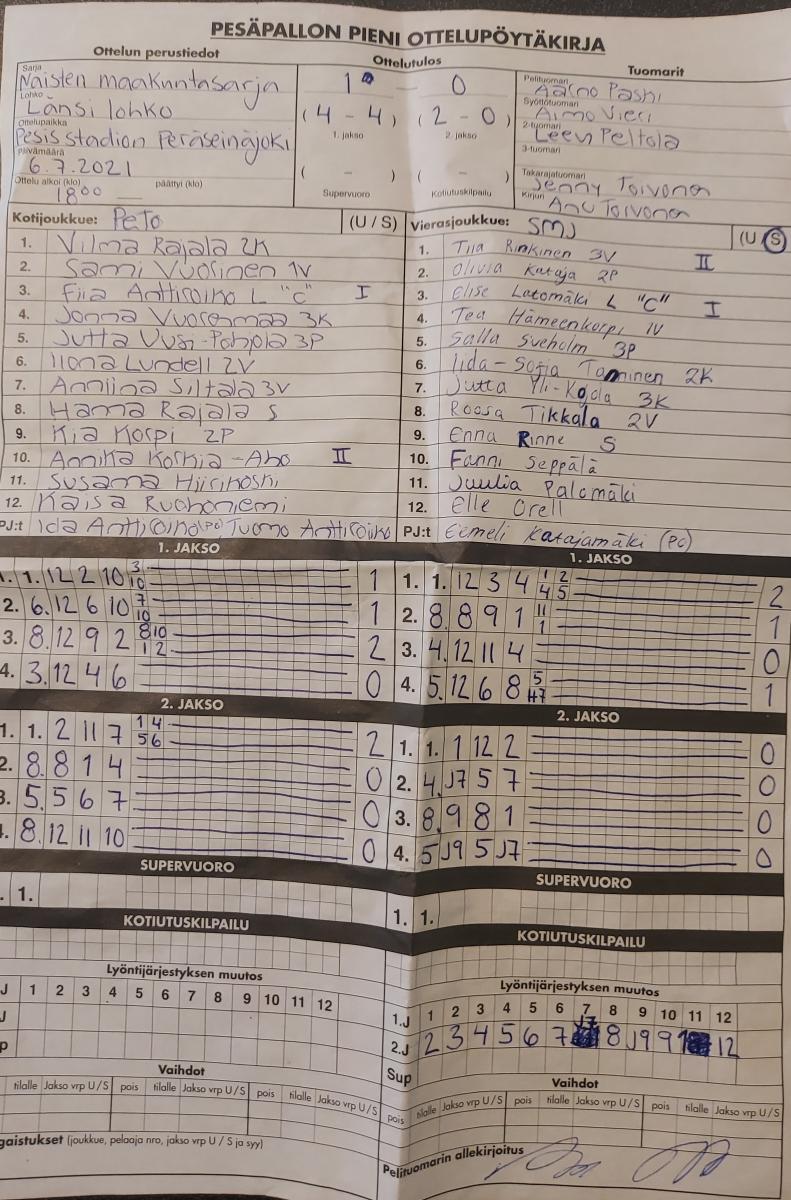 PESÄPALLON PIENI OTTELUPÖYTÄKIRJA
Ottelun perustiedot
Ottelutulos
Tuomarit
Sarja
Naisten maakuntasarja
Lohko
Länsi lohko
Ottelupaikka
Pesis stadion Peräseinäjoki
Päivämäärä
6.7.2021
Ottelu alkoi (klo) päättyi (klo)
18 00 —
1 — 0
(4 - 4) (2 - 0)
1. jakso 2. jakso
( - ) ( - )
Supervuoro Kotiutuskilpailu
Pelituomari
Aarno Pashi
Syöttötuomari
Aimo Vieri
2-tuomari
Leevi Peltola
3-tuomari
Takarajatuomari
Jenny Toivonen
Kirjuri
Anu Toivonen
Kotijoukkue: PeTo (U / S)
1. Vilma Rajala 2K
2. Sami Vuorinen 1V
3. Fiia Anttiroiko L "C" I
4. Jonna Vuorenmaa 3K
5. Jutta Uusi-Pohjola 3P
6. Ilona Lundell 2V
7. Anniina Siltala 3V
8. Hanna Rajala S
9. Kia Korpi 2P
10. Annika Korkia-Aho II
11. Susanna Hiirikoski
12. Kaisa Ruohoniemi
PJ:t Ida Anttiroiko (PC), Tuomo Anttiroiko
Vierasjoukkue: SMJ (U / S)
1. Tiia Rinkinen 3V II
2. Olivia Kataja 2P
3. Elise Latomäki L "C" I
4. Tea Hämeenkorpi 1V
5. Salla Sveholm 3P
6. Iida-Sofia Tominen 2K
7. Jutta Yli-Kojola 3K
8. Roosa Tikkala 2V
9. Enna Rinne S
10. Fanni Seppälä
11. Juulia Palomäki
12. Elle Orell
PJ:t Eemeli Katajamäki (PC)
1. JAKSO
1. 1. 12 2 10 3 10 1
2. 6. 12 6 10 7 10 1
3. 8. 12 9 2 8 10 1 2 2
4. 3. 12 4 6 0
1. JAKSO
1. 1. 12 3 4 1 2 4 5 2
2. 8. 8 9 1 11 1 1
3. 4. 12 11 4 0
4. 5. 12 6 8 5 47 1
2. JAKSO
1. 1. 2 11 7 1 4 5 6 2
2. 8. 8 1 4 0
3. 5. 5 6 7 0
4. 8. 12 11 10 0
2. JAKSO
1. 1. 1 12 2 0
2. 4. J7 5 7 0
3. 8. 9 8 1 0
4. 5 J9 5 J7 0
SUPERVUORO
1.
SUPERVUORO
1. 1.
KOTIUTUSKILPAILU
KOTIUTUSKILPAILU
Lyöntijärjestyksen muutos
J 1 2 3 4 5 6 7 8 9 10 11 12
J
p
Lyöntijärjestyksen muutos
1.J 1 2 3 4 5 6 7 8 9 10 11 12
2.J 2 3 4 5 6 7 J7 8 J9 9 12
Sup
Vaihdot
tilalle Jakso vrp U / S pois tilalle Jakso vrp U / S pois tilalle Jakso vrp U / S
Vaihdot
pois tilalle Jakso vrp U / S pois tilalle Jakso vrp U / S pois tilalle Jakso vrp U / S
gaistukset (joukkue, pelaaja nro, jakso vrp U / S ja syy)
Pelituomarin allekirjoitus